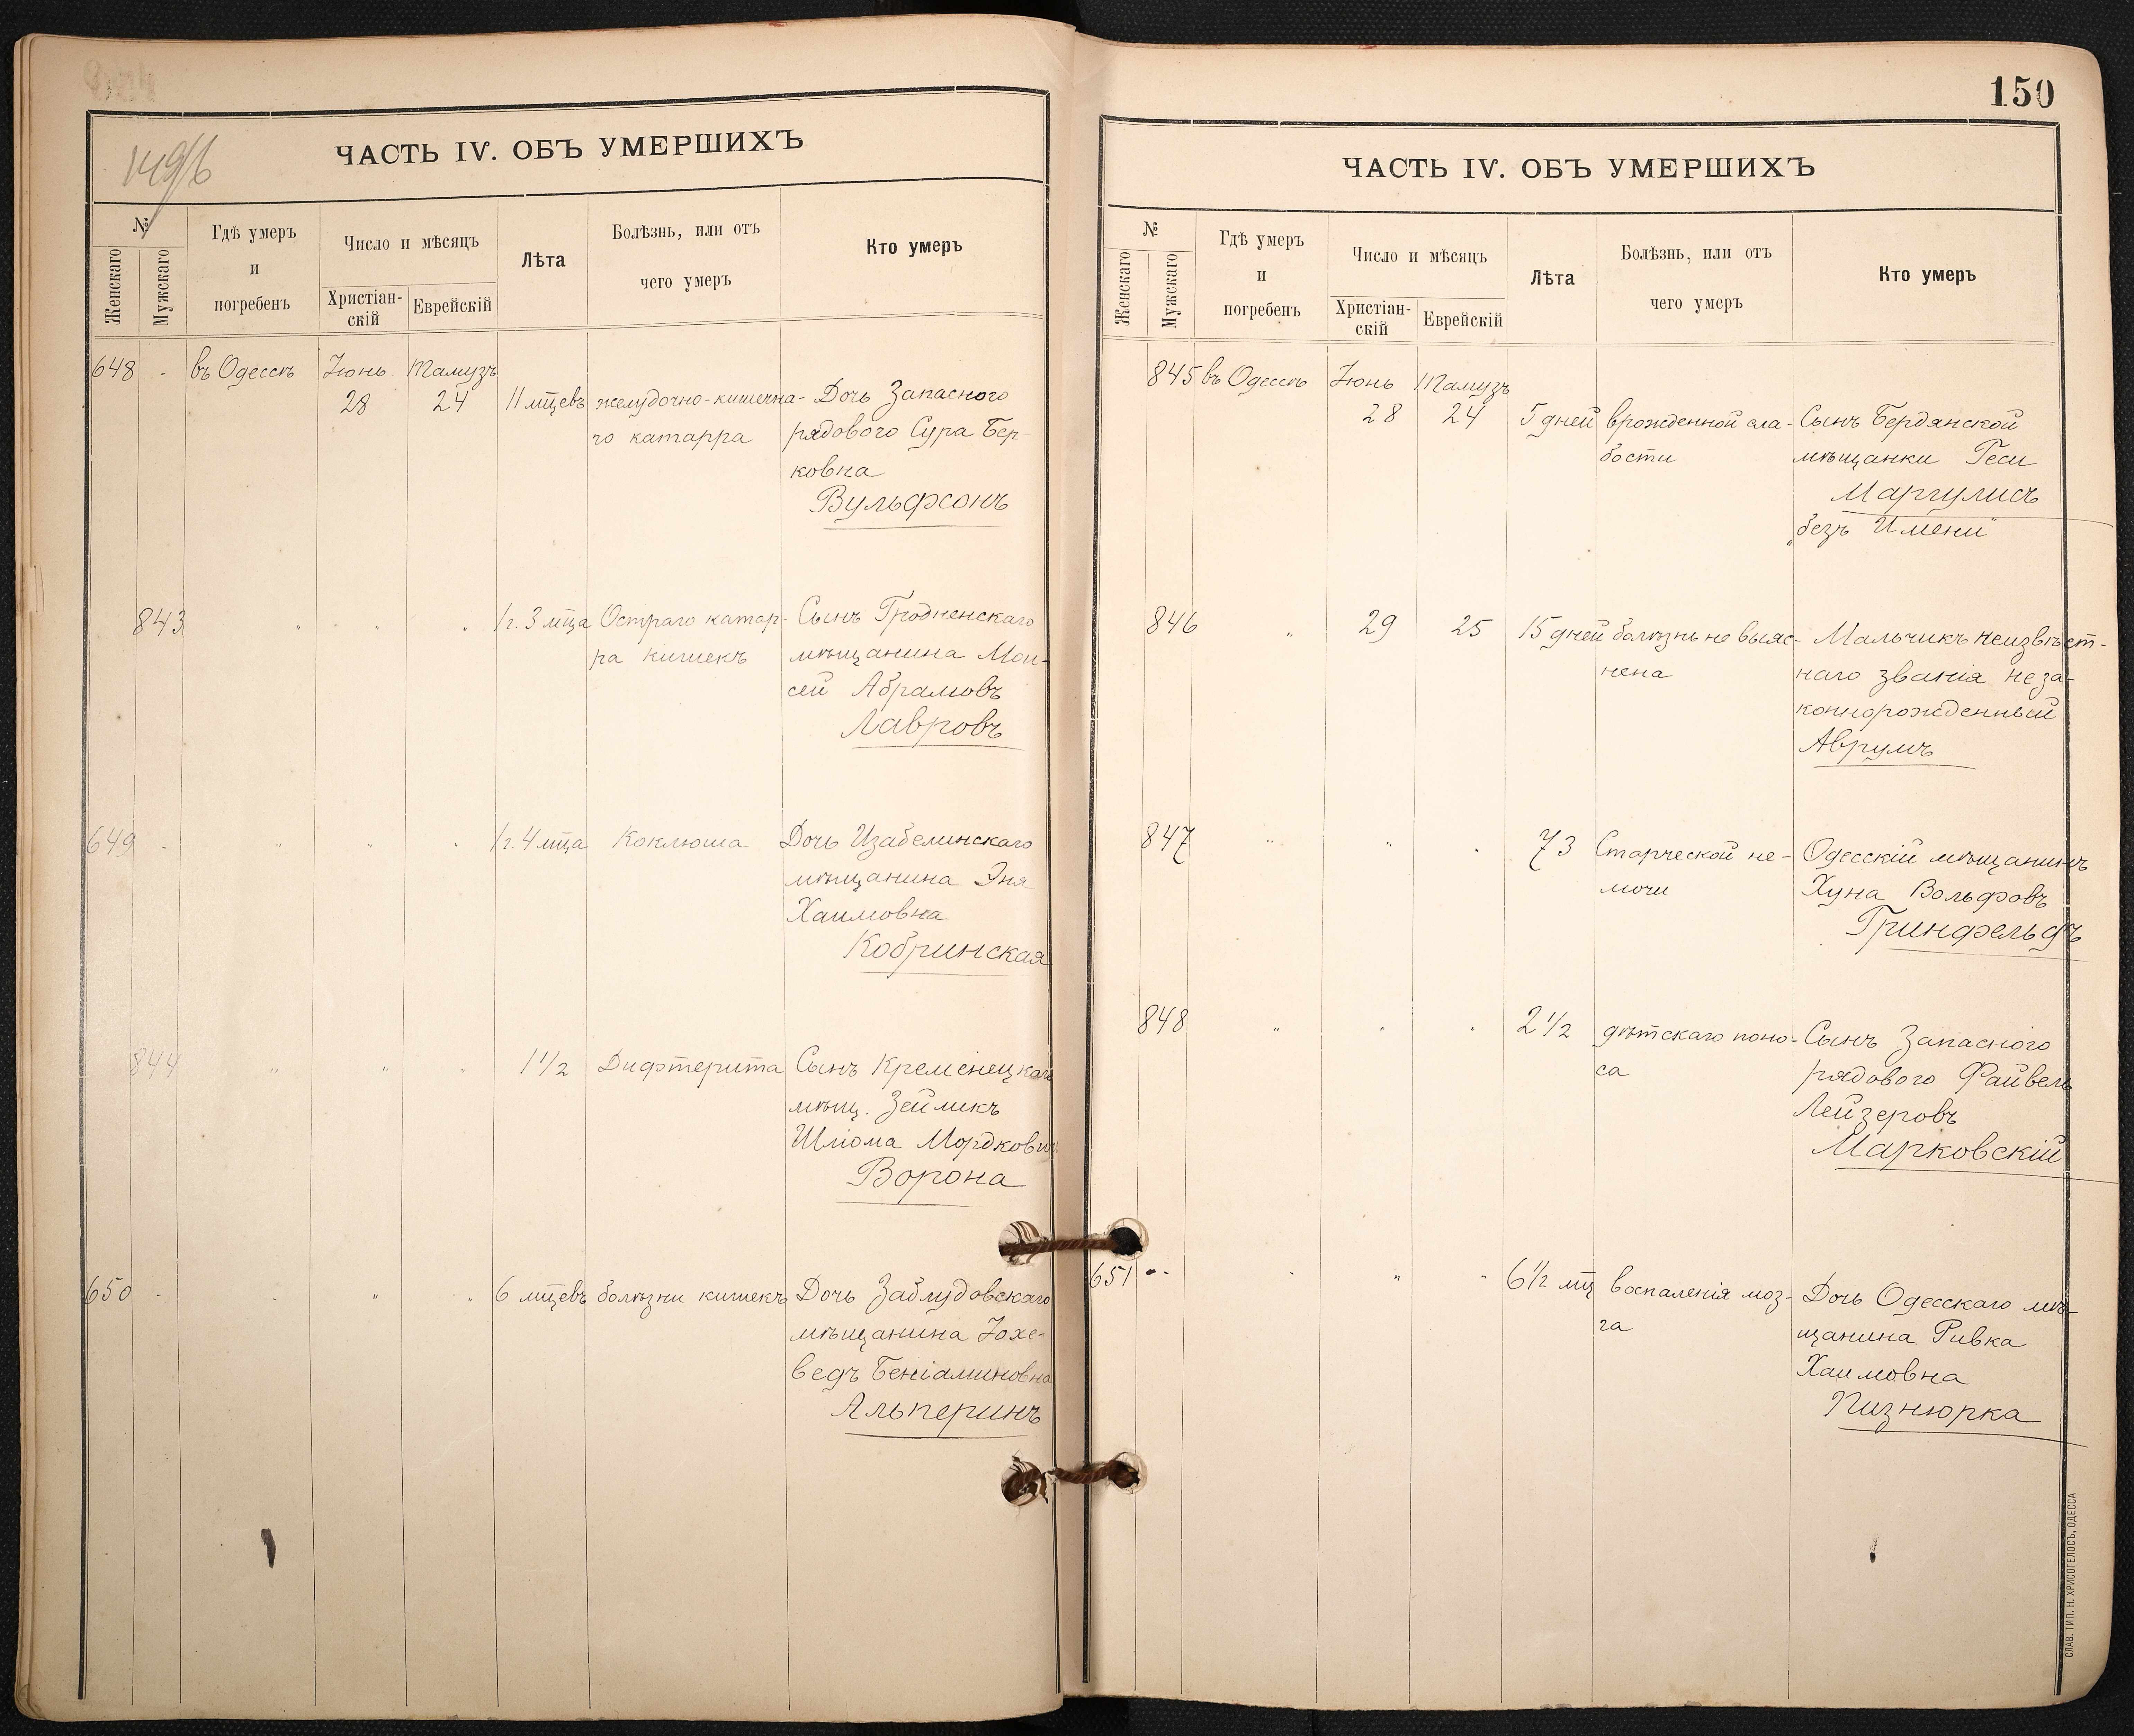 149/б
ЧАСТЬ IV. ОБЪ УМЕРШИХЪ
№
Женскаго
Мужскаго
Гдѣ умеръ
и
погребенъ
Число и мѣсяцъ
Христіан-
скій
Еврейскій
Лѣта
Болѣзнь, или отъ
чего умеръ
Кто умеръ
648 - въ Одессѣ Іюнь Тамузъ
28 24 11 мцевъ желудочно-кишечна- Дочь Запаснаго
го катарра рядового Сура Бер-
ковна
Вульфсонъ
843 " " " " 1 г. 3 мца Остраго катар- Сынъ Гродненскаго
ра кишекъ мѣщанина Мои-
сей Абрамовъ
Лавровъ
649 - " " " 1 г. 4 мца Коклюша Дочь Изабелинскаго
мѣщанина Эня
Хаимовна
Кобринская
844 " " " 1 1/2 Дифтерита Сынъ Кременецкаго
мѣщ. Зейликъ
Шліома Мордковъ
Ворона
650 - " " " 6 мцевъ болѣзни кишекъ Дочь Заблудовскаго
мѣщанина Іохе-
ведъ Беніаминовна
Альперинъ
150
ЧАСТЬ IV. ОБЪ УМЕРШИХЪ
№
Женскаго
Мужскаго
Гдѣ умеръ
и
погребенъ
Число и мѣсяцъ
Христіан-
скій
Еврейскій
Лѣта
Болѣзнь, или отъ
чего умеръ
Кто умеръ
845 въ Одессѣ Іюнь Тамузъ
28 24 5 дней врожденной сла- Сынъ Бердянской
бости мѣщанки Геси
Маргулисъ
„безъ Имени"
846 " 29 25 15 дней болѣзнь не выяс- Мальчикъ неизвѣст-
нена наго званія неза-
коннорожденный
Аврумъ
847 " " " 73 Старческой не- Одесскій мѣщанинъ
мочи Хуна Вольфовъ
Гринфельдъ
848 " " " 2 1/2 дѣтскаго поно- Сынъ Запаснаго
са рядового Файвель
Лейзеровъ
Марковскій
651 - " " " 6 1/2 мц воспаленія моз- Дочь Одесскаго мѣ-
га щанина Ривка
Хаимовна
Пизнюрка
СЛАВ. ТИП. Н. ХРИСОГЕЛОСЪ, ОДЕССА